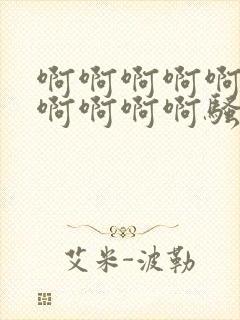 啊啊啊啊啊
啊啊啊啊骚
艾米-波勒